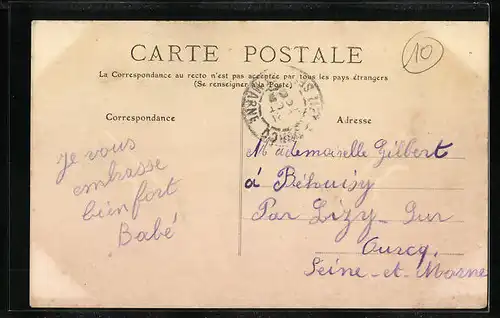 CARTE POSTALE
10
La Correspondance au recto n'est pas acceptée par tous les pays étrangers
(Se renseigner à la Poste)
MARNE
Correspondance
Adresse
Je vous
embrasse
bien fort
Babé
Mademoiselle Gilbert
à
Par Lizy-Sur
Ourcq.
Seine-et-Marne